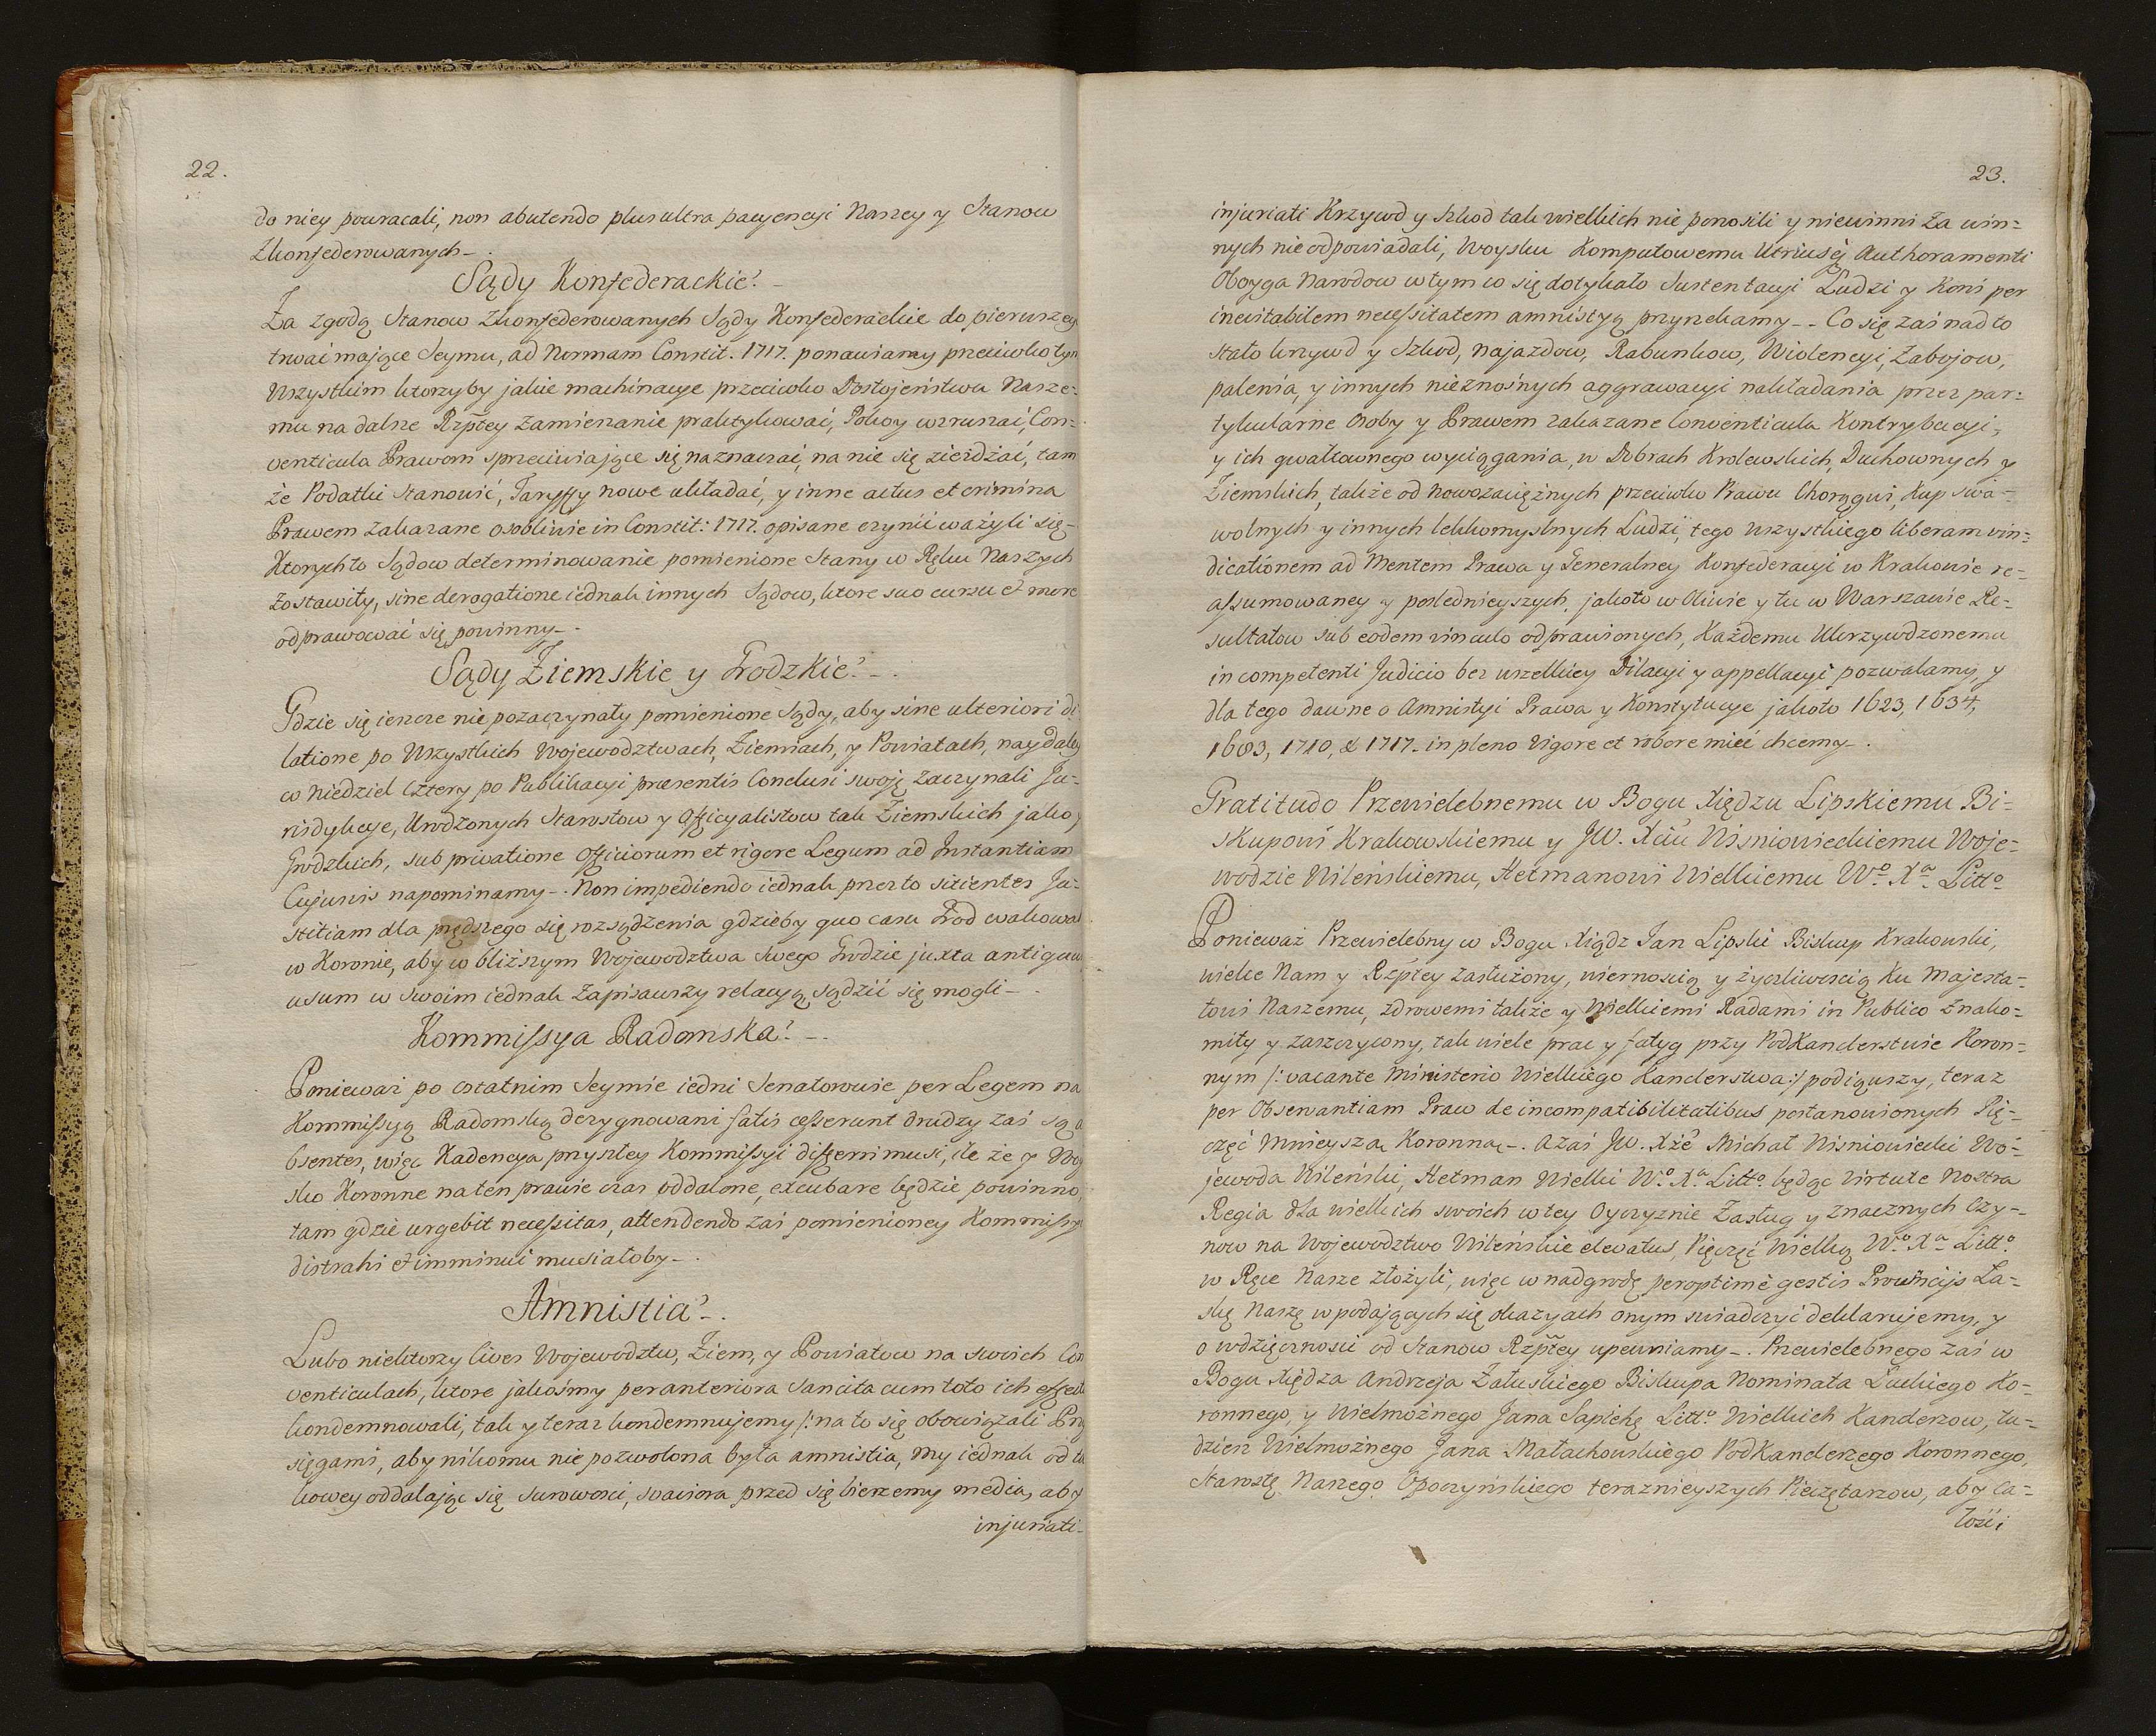 22.
do niey powracali, non abutendo plus ultra pacyencyi Naszey y Stanow
Zkonfederowanych -.
Sądy Konfederackie. -
Za zgodą Stanow Zkonfederowanych Sądy Konfederackie do pierwszey
trwać mające Seymu, ad Normam Constit. 1717. ponawiamy przeciwko tym
Wszystkim ktorzyby jakie machinacye przeciwko Dostojeństwu Nasze=
mu na dalsze Rzptey Zamieszanie praktykować, Pokoy wzruszać, Con=
venticula Prawom sprzeciwiające się naznaczać, na nie się zieżdżać, tam
że Podatki Stanowić, Taryffy nowe układać, y inne actus et crimina
Prawem Zakazane osobliwie in Constit: 1717. opisane czynić ważyli się -
Ktorych to Sądow determinowanie pomienione Stany w Ręku Naszych
Zostawiły, sine derogatione iednak innych Sądow, ktore suo cursu et more
odprawować się powinny -.
Sądy Ziemskie y Grodzkie. -.
Gdzie się ieszcze nie pozaczynały pomienione Sądy, aby sine ulteriori di
latione po Wszystkich Wojewodztwach, Ziemiach, y Powiatach, naydaley
w Niedziel Cztery po Publikacyi præsentis Conclusi swoję Zaczynali Ju=
risdykcye, Urodzonych Starostow y Officyalistow tak Ziemskich jako y
Grodzkich, sub privatione Officiorum et rigore Legum ad Instantiam
Cujusvis napominamy -. Non impediendo iednak przez to sitientes Ju=
stitiam dla prędszego się rozsądzenia gdzieby quo casu Grod wakował
w Koronie, aby w bliższym Wojewodztwa swego Grodzie juxta antiquum
usum w swoim iednak Zapisawszy relacyą sądzić się mogli -.
Kommissya Radomska. -.
Ponieważ po ostatnim Seymie iedni Senatorowie per Legem na
Kommissyą Radomską dezygnowani fatis cesserunt drudzy zaś są a
bsentes, więc Kadencya przyszłey Kommissyi differri musi, ile że y Woy
sko Koronne na ten prawie czas oddalone, excubare będzie powinno,
tam gdzie urgebit necessitas, attendendo zaś pomienioney Kommissyi
distrahi et imminui musiałoby -.
Amnistia. -.
Lubo niektorzy Cives Wojewodztw, Ziem, y Powiatow na swoich Con
venticulach, ktore jakośmy per anteriora Sancita cum toto ich effectu
kondemnowali, tak y teraz kondemnujemy /: na to się obowiązali Przy
sięgami, aby nikomu nie pozwolona była amnistia, My iednak od ta
kowey oddalając się surowości, svaviora przed się bierzemy media, aby
injuriati -
23.
injuriati Krzywd y Szkod tak wielkich nie ponosili y niewinni Za win=
nych nie odpowiadali, Woysku Komputowemu Utriusq Authoramenti
Oboyga Narodow w tym co się dotykało Sustentacyi Ludzi y Koni per
inevitabilem necessitatem amnistyą przyrzekamy -. Co się zaś nad to
stało krzywd y Szkod, Najazdow, Rabunkow, Wiolencyi, Zabojow,
palenia, y innych nieznośnych aggrawacyi nakładania przez par=
tykularne Osoby y Prawem zakazane Conventicula Kontrybucyi,
y ich gwałtownego wyciągania, w Dobrach Krolewskich, Duchownych y
Ziemskich, także od Nowozaciężnych przeciwko Prawu Chorągwi, Kup swa=
wolnych y innych lekkomyslnych Ludzi, tego wszystkiego liberam vin=
dicationem ad Mentem Prawa y Generalney Konfederacyi w Krakowie re=
assumowaney y poslednieyszych, jakoto w Oliwie y tu w Warszawie Re=
sultatow sub eodem vinculo odprawionych, Każdemu Ukrzywdzonemu
in competenti Judicio bez wszelkiey Dilacyi y appellacyi pozwalamy, y
dla tego dawne o Amnistyi Prawa y Konstytucye jakoto 1623, 1634,
1683, 1710, & 1717. in pleno Vigore et robore mieć chcemy -.
Gratitudo Przewielebnemu w Bogu Xiędzu Lipskiemu Bi=
skupowi Krakowskiemu y JW. Xciu Wisniowieckiemu Woje=
wodzie Wileńskiemu, Hetmanowi Wielkiemu Wo. Xa. Litto.
Ponieważ Przewielebny w Bogu Xiądz Jan Lipski Biskup Krakowski,
wielce Nam y Rzptey zasłużony, wiernością y życzliwością Ku Majesta=
towi Naszemu, zdrowemi także y Wielkiemi Radami in Publico Znako=
mity y zaszczycony, tak wiele prac y fatyg przy PodKanclerstwie Koron=
nym /: vacante Ministerio Wielkiego Kanclerstwa :/ podiąwszy, teraz
per Observantiam Praw de incompatibilitatibus postanowionych Pie=
częć Mnieyszą Koronną -. a zaś JW. Xże Michał Wisniowiecki Wo=
jewoda Wileński, Hetman Wielki Wo. Xa. Litto. będąc Virtute Nostra
Regia dla wielkich swoich w tey Oyczyznie Zasług y znacznych Czy=
now na Wojewodztwo Wileńskie elevatus, Pięczęć Wielką Wo. Xa. Litto.
w Ręce Nasze złożyli, więc w nadgrodę peroptimè gestis Provincijs Ła=
skę Naszę w podających się okazyach onym swiadczyć deklarujemy, y
o wdzięczności od Stanow Rzptey upewniamy -. Przewielebnego zaś w
Bogu Xiędza Andrzeja Załuskiego Biskupa Nominata Łuckiego Ko=
ronnego, y Wielmożnego Jana Sapiehę Litto. Wielkich Kanclerzow, tu=
dziesz Wielmożnego Jana Małachowskiego PodKanclerzego Koronnego,
Starostę Naszego Opoczyńskiego teraznieyszych Pieczętarzow, aby Ca=
łości